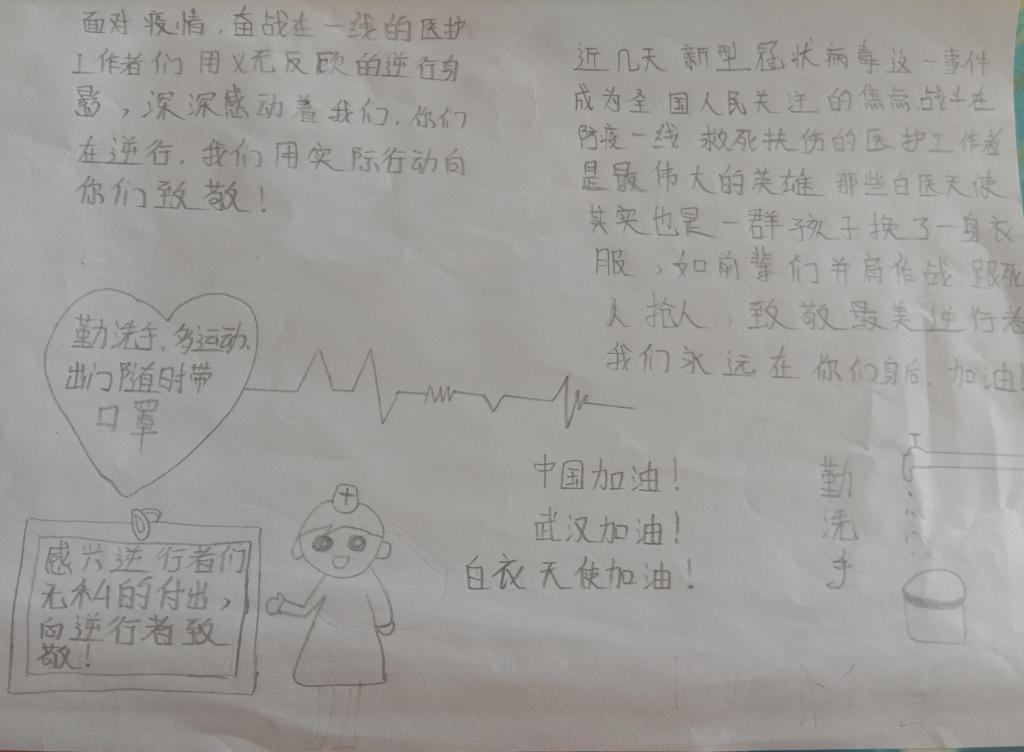 面对疫情，奋战在一线的医护
工作者们用义无反顾的逆行身
影，深深感动着我们，你们
在逆行，我们用实际行动向
你们致敬！
近几天新型冠状病毒这一事件
成为全国人民关注的焦点战斗在
防疫一线救死扶伤的医护工作者
是最伟大的英雄那些白医天使
其实也是一群孩子换了一身衣
服，如前辈们并肩作战跟死
人抢人，致敬最美逆行者
我们永远在你们身后，加油！
勤洗手、多运动、
出门随时带
口罩
中国加油！
武汉加油！
白衣天使加油！
勤
洗
手
感兴逆行者们
无私的付出，
向逆行者致
敬！